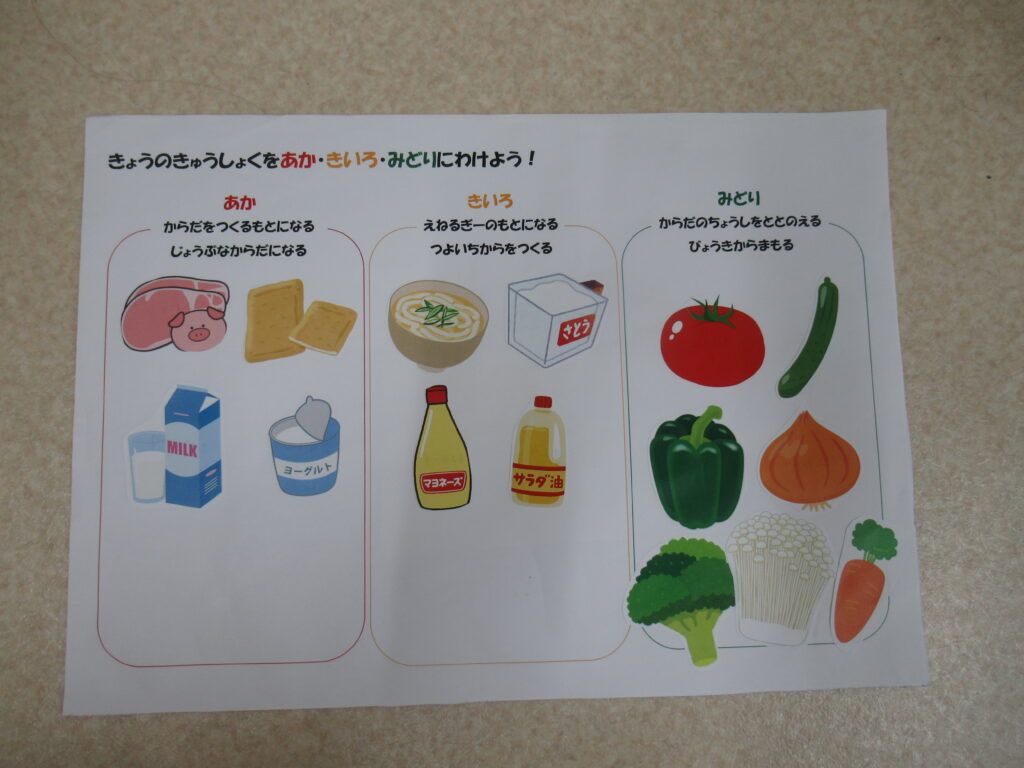 きょうのきゅうしょくをあか・きいろ・みどりにわけよう！
あか
からだをつくるもとになる
じょうぶなからだになる
MILK
ヨーグルト
きいろ
えねるぎーのもとになる
つよいちからをつくる
さとう
マヨネーズ
サラダ油
みどり
からだのちょうしをととのえる
びょうきからまもる